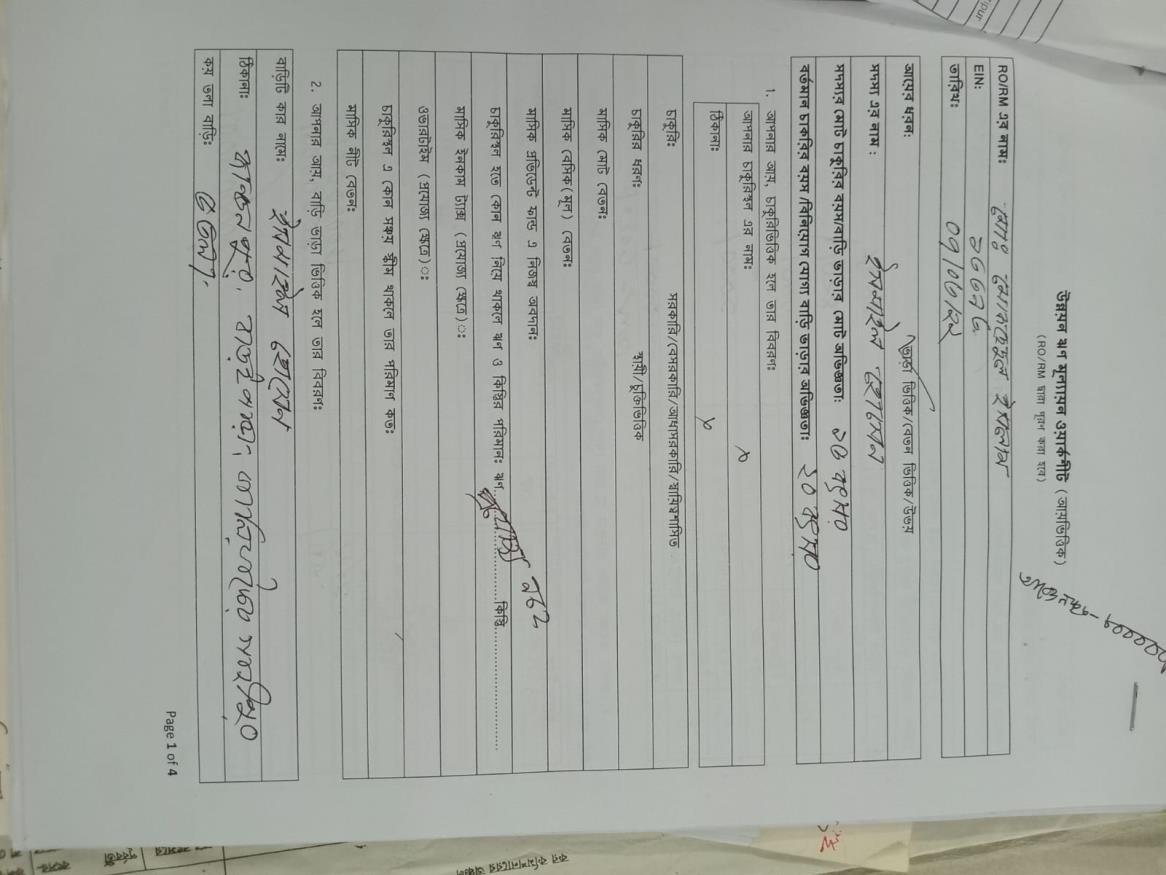 উন্নয়ন ঋণ মূল্যায়ন ওয়ার্কশীট (আয়ভিত্তিক)
(RO/RM দ্বারা পূরন করা হবে)
RO/RM এর নাম: মোঃ মোকছেদুল ইসলাম
EIN:
তারিখঃ ০৭/০৩/২২
আয়ের ধরন: ভাড়া ভিত্তিক/বেতন ভিত্তিক/উভয়
সদস্য এর নাম : ইসমাইল হোসেন
সদস্যর মোট চাকুরির বয়স/বাড়ি ভাড়ার মোট অভিজ্ঞতা: ১৫ বৎসর
বর্তমান চাকরির বয়স /বিনিয়োগ যোগ্য বাড়ি ভাড়ার অভিজ্ঞতাঃ ২০ বৎসর
1. আপনার আয়, চাকুরিভিত্তিক হলে তার বিবরণঃ
আপনার চাকুরিস্থল এর নাম: x
ঠিকানা: x
চাকুরি: সরকারি/বেসরকারি/আধাসরকারি/স্বায়িত্বশাসিত
চাকুরির ধরণঃ স্থায়ী/চুক্তিভিত্তিক
মাসিক মোট বেতন:
মাসিক বেসিক(মূল) বেতন:
মাসিক প্রভিডেন্ট ফান্ড এ নিজস্ব অবদান:
চাকুরিস্থল হতে কোন ঋণ নিয়ে থাকলে ঋণ ও কিস্তির পরিমান: ঋণ..............................কিস্তি..............................
প্রযোজ্য নহে
মাসিক ইনকাম ট্যাক্স (প্রযোজ্য ক্ষেত্রে)ঃ
ওভারটাইম (প্রযোজ্য ক্ষেত্রে)ঃ
চাকুরিস্থল এ কোন সঞ্চয় স্কীম থাকলে তার পরিমান কত:
মাসিক নীট বেতন:
2. আপনার আয়, বাড়ি ভাড়া ভিত্তিক হলে তার বিবরণঃ
বাড়িটি কার নামে: ইসমাইল হোসেন
ঠিকানা:
কয় তলা বাড়ি: ৫ তলা
Page 1 of 4